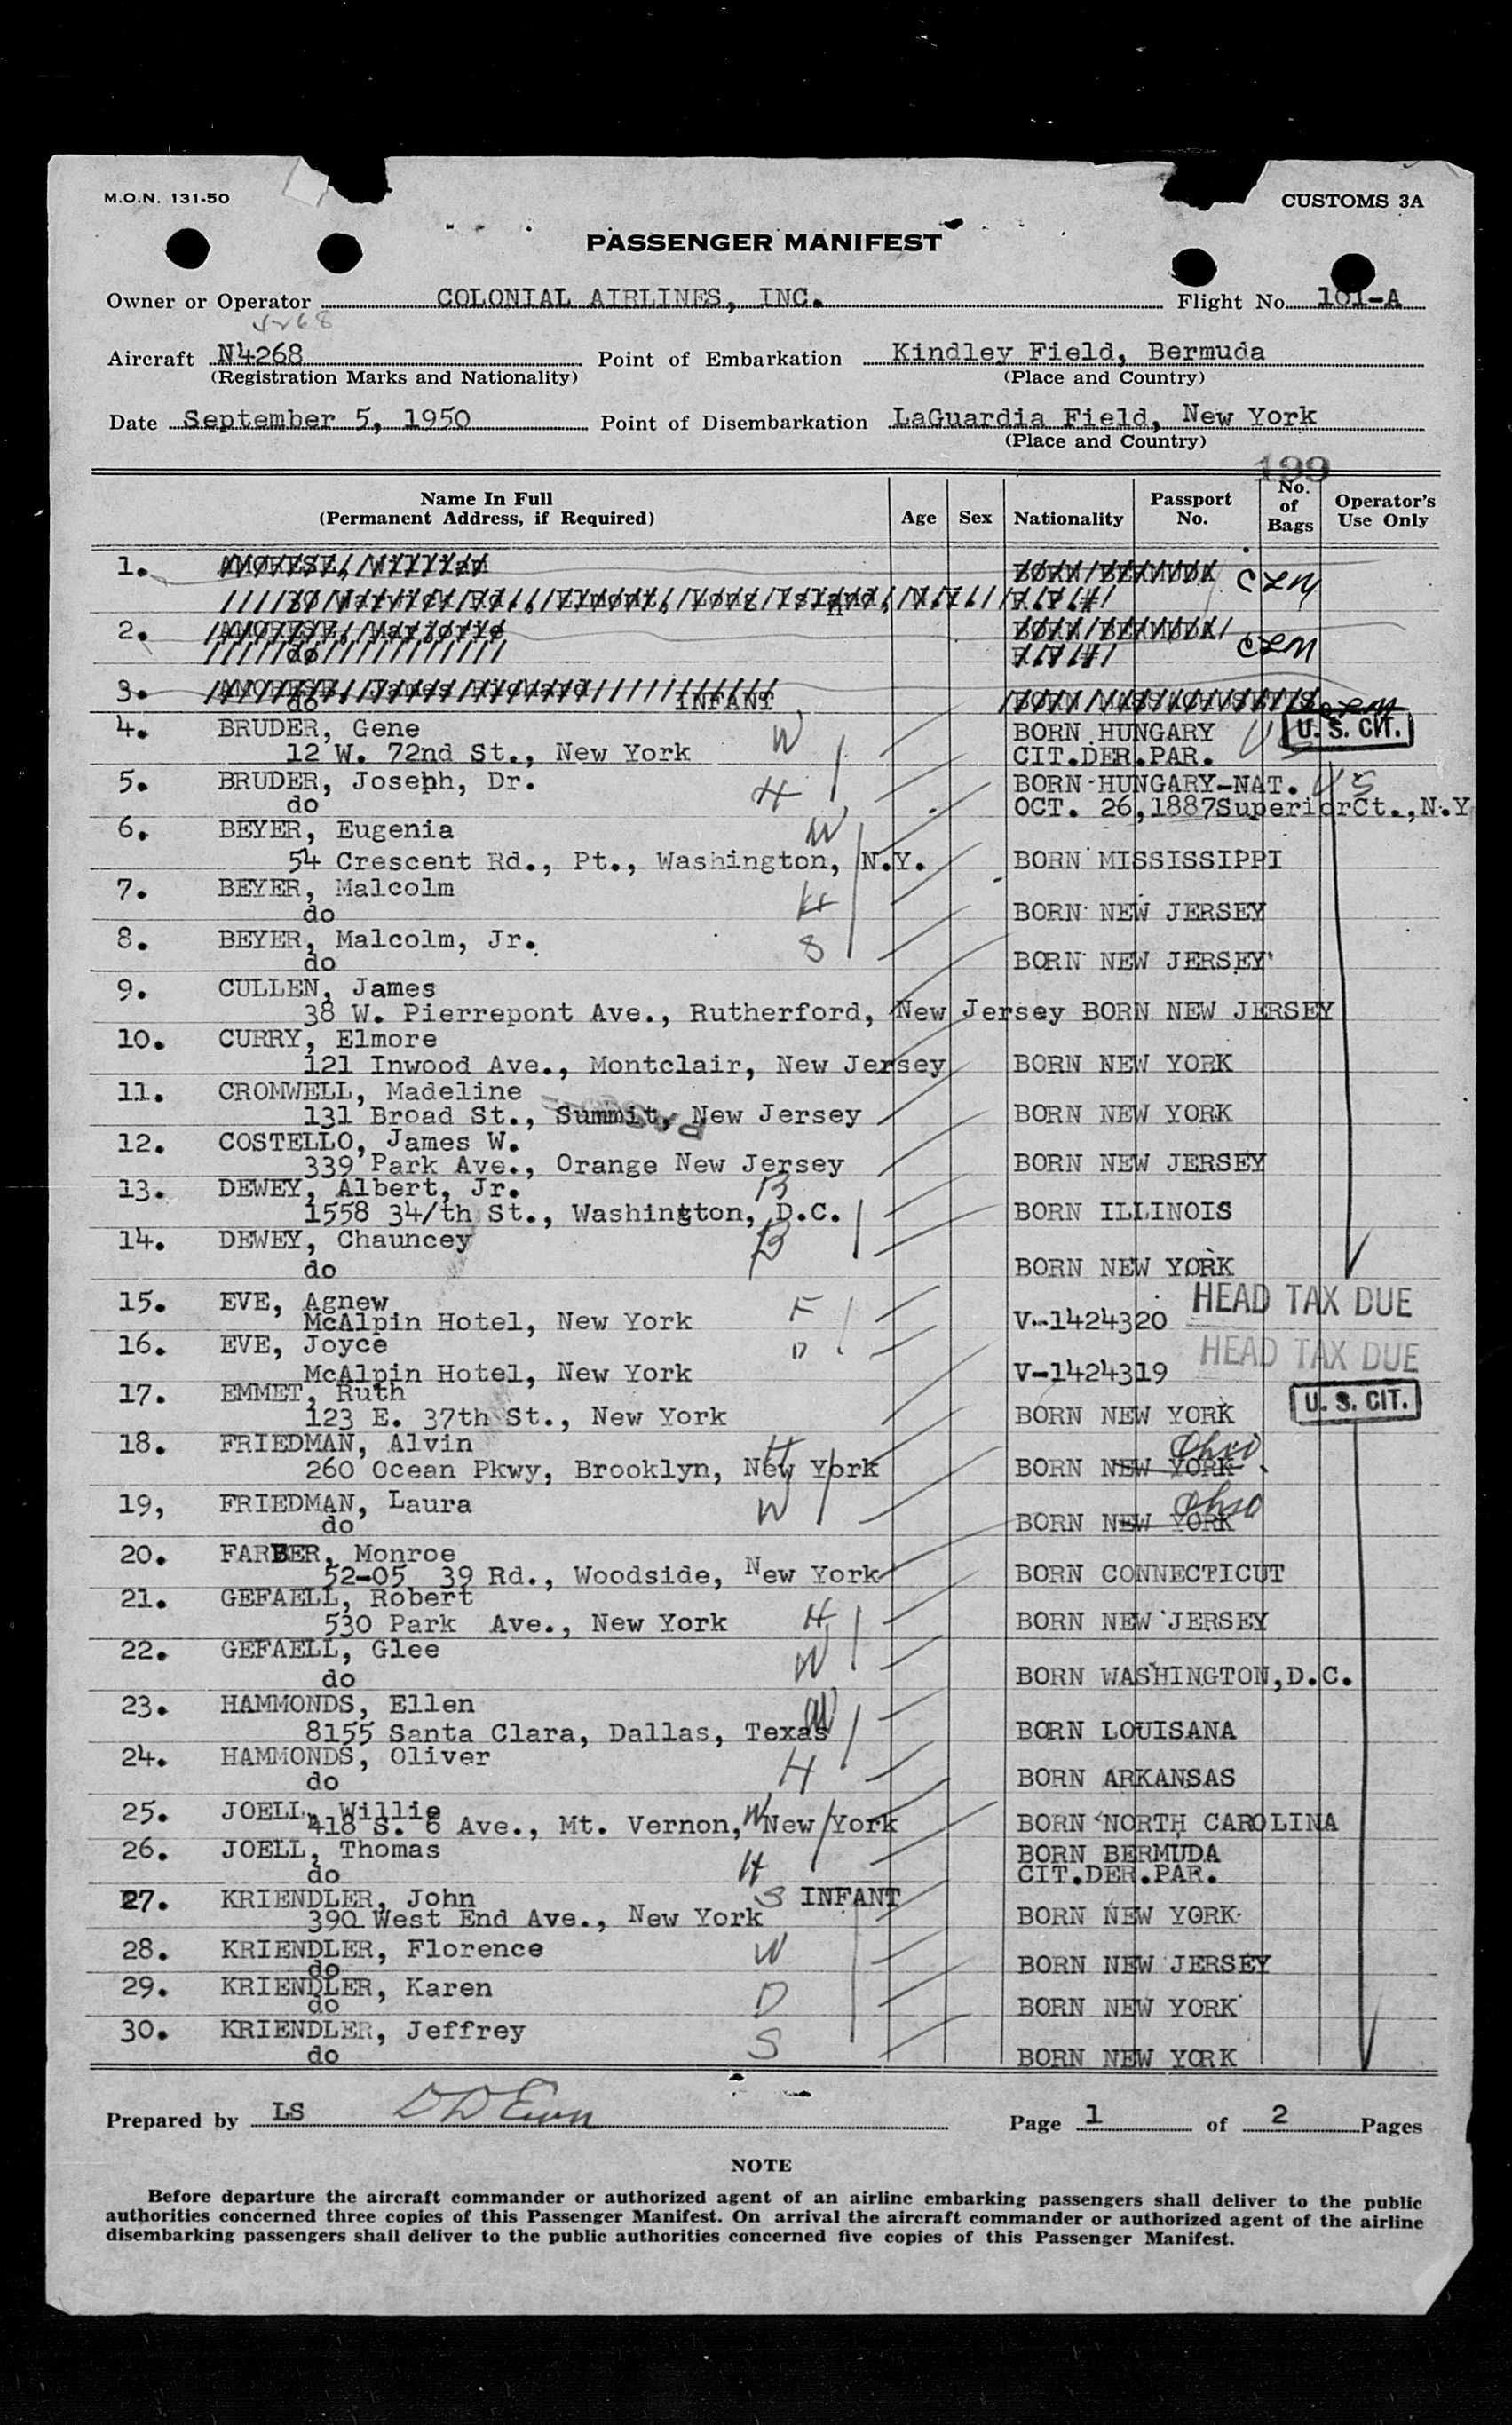 M.O.N. 131-50
CUSTOMS 3A
PASSENGER MANIFEST
Owner or Operator COLONIAL AIRLINES, INC. Flight No. 101-A
4268
Aircraft N4268 Point of Embarkation Kindley Field, Bermuda
(Registration Marks and Nationality) (Place and Country)
Date September 5, 1950 Point of Disembarkation LaGuardia Field, New York
(Place and Country)
199
Name In Full (Permanent Address, if Required) Age Sex Nationality Passport No. No. of Bags Operator's Use Only
1. CLM
2. CLM
do
3.
do INFANT
4. BRUDER, Gene W BORN HUNGARY U S U. S. CIT.
12 W. 72nd St., New York CIT.DER.PAR.
5. BRUDER, Joseph, Dr. H BORN HUNGARY-NAT. US
do OCT. 26,1887SuperiorCt.,N.Y
6. BEYER, Eugenia W
54 Crescent Rd., Pt., Washington, N.Y. BORN MISSISSIPPI
7. BEYER, Malcolm H
do BORN NEW JERSEY
8. BEYER, Malcolm, Jr. S
do BORN NEW JERSEY
9. CULLEN, James
38 W. Pierrepont Ave., Rutherford, New Jersey BORN NEW JERSEY
10. CURRY, Elmore
121 Inwood Ave., Montclair, New Jersey BORN NEW YORK
11. CROMWELL, Madeline
131 Broad St., Summit, New Jersey BORN NEW YORK
12. COSTELLO, James W.
339 Park Ave., Orange New Jersey BORN NEW JERSEY
13. DEWEY, Albert, Jr. B
1558 34/th St., Washington, D.C. BORN ILLINOIS
14. DEWEY, Chauncey B
do BORN NEW YORK
15. EVE, Agnew F HEAD TAX DUE
McAlpin Hotel, New York V-1424320
16. EVE, Joyce D HEAD TAX DUE
McAlpin Hotel, New York V-1424319
17. EMMET, Ruth U. S. CIT.
123 E. 37th St., New York BORN NEW YORK
18. FRIEDMAN, Alvin H Ohio
260 Ocean Pkwy, Brooklyn, New York BORN NEW YORK
19, FRIEDMAN, Laura W Ohio
do BORN NEW YORK
20. FARBER, Monroe
52-05 39 Rd., Woodside, New York BORN CONNECTICUT
21. GEFAELL, Robert
530 Park Ave., New York H BORN NEW JERSEY
22. GEFAELL, Glee W
do BORN WASHINGTON,D.C.
23. HAMMONDS, Ellen W
8155 Santa Clara, Dallas, Texas BORN LOUISANA
24. HAMMONDS, Oliver H
do BORN ARKANSAS
25. JOELL, Willie W
418 S. 6 Ave., Mt. Vernon, New York BORN NORTH CAROLINA
26. JOELL, Thomas H BORN BERMUDA
do CIT.DER.PAR.
27. KRIENDLER, John S INFANT
390 West End Ave., New York BORN NEW YORK
28. KRIENDLER, Florence W
do BORN NEW JERSEY
29. KRIENDLER, Karen D
do BORN NEW YORK
30. KRIENDLER, Jeffrey S
do BORN NEW YORK
Prepared by LS Page 1 of 2 Pages
NOTE
Before departure the aircraft commander or authorized agent of an airline embarking passengers shall deliver to the public
authorities concerned three copies of this Passenger Manifest. On arrival the aircraft commander or authorized agent of the airline
disembarking passengers shall deliver to the public authorities concerned five copies of this Passenger Manifest.